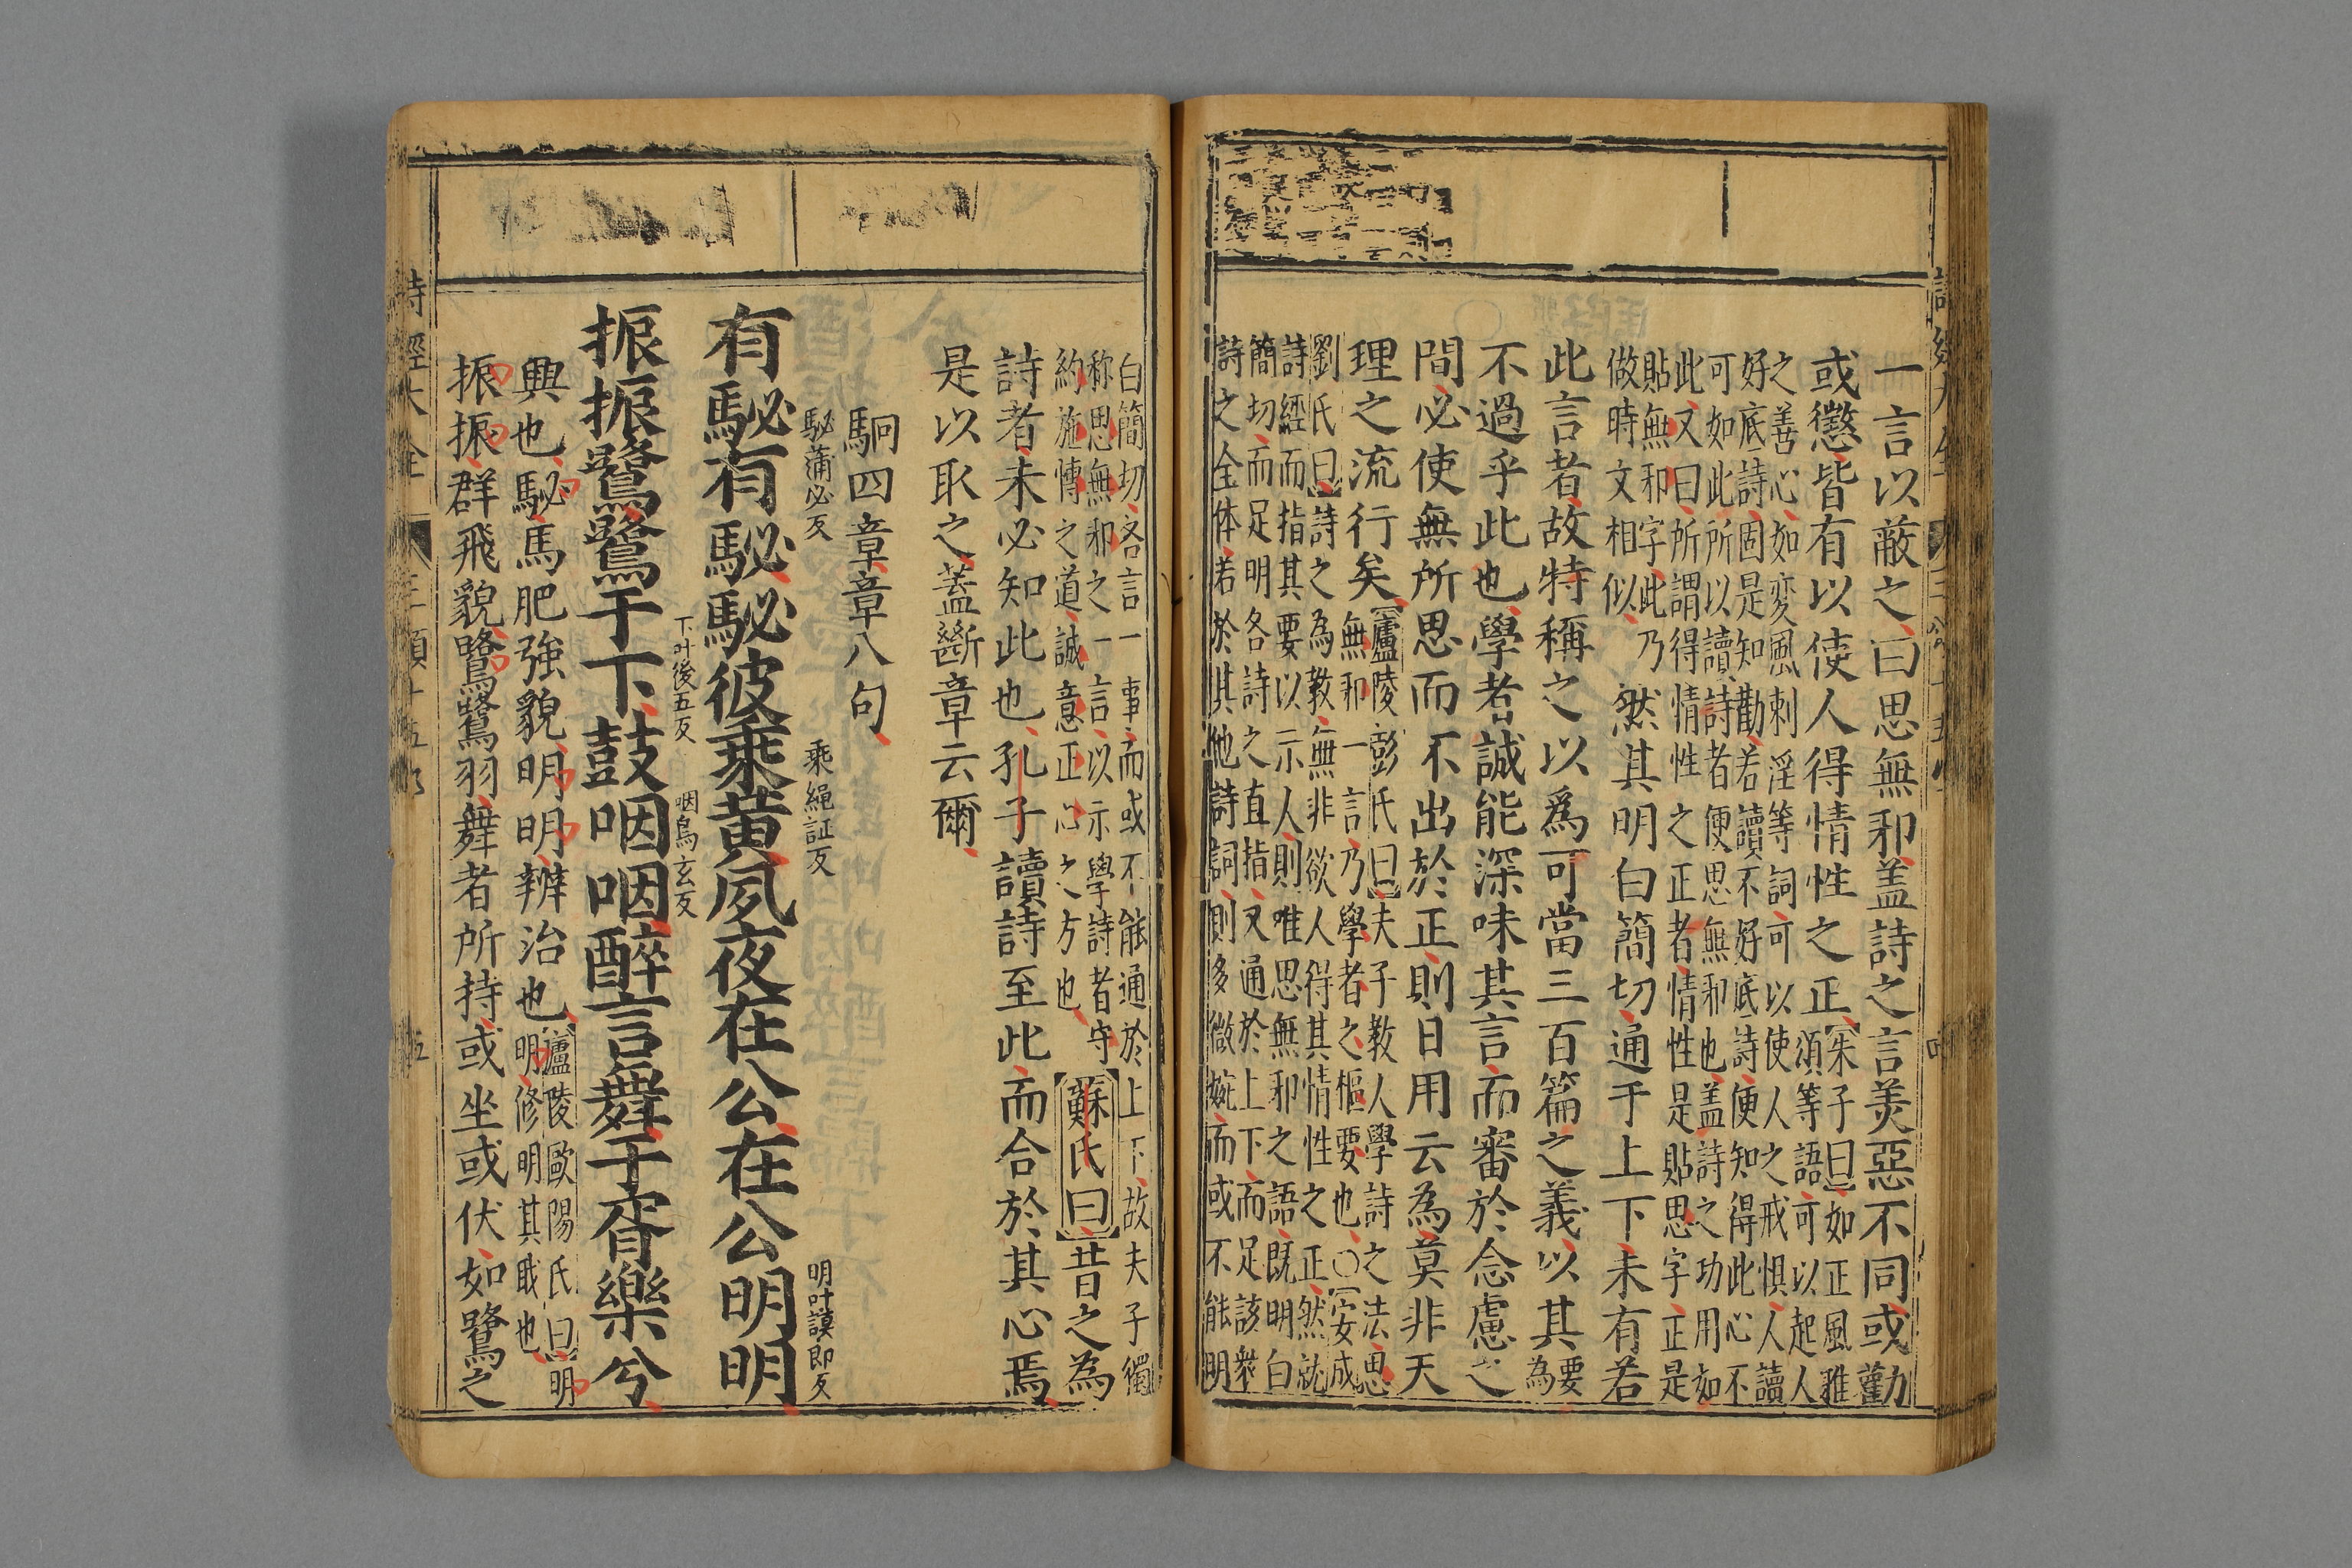 一言以蔽之曰思無邪盖詩之言羙惡不同或勸
或懲皆有以使人得情性之正
朱子曰如正風雅
須等語可以起人
之善心如変風刺淫等詞可以使人之戒惧人讀
好底詩固是知勸若讀不好底詩便知得此心不
可如此所以讀詩者便思無邪也盖詩之功用如
此又曰所謂得情性之正者情性是貼思字正是
貼無邪字此乃
做時文相似
然其明白簡切通乎上下未有若
此言者故特稱之以爲可當三百篇之義以其
要
為
不過乎此也學者誠能深味其言而審於念慮之
間必使無所思而不出於正則日用云為莫非天
理之流行矣
廬陵彭氏曰夫子教人學詩之法思
無邪一言乃學者之樞要也○安成
劉氏曰詩之為教無非欲人得其情性之正然就
詩經而指其要以示人則唯思無邪之語既明白
簡切而足明各詩之直指又通於上下而足該衆
詩之全体若於其他詩詞則多微婉而或不能明
白簡切各言一事而或不能通於上下故夫子獨
称思無邪之一言以示學詩者守
約施博之道誠意正心之方也
蘇氏曰昔之為
詩者未必知此也孔子讀詩至此而合於其心焉
是以取之蓋斷章云爾
駉四章章八句
有駜有駜駜彼乘黄夙夜在公在公明明
駜蒲必反
乘繩証反
明叶謨郎反
振振鷺鷺于下鼓咽咽醉言舞于胥樂兮
下叶後五反
咽烏玄反
興也駜馬肥強貌明明辨治也
廬陵歐陽氏曰明
明修明其職也
振振群飛貌鷺鷺羽舞者所持或坐或伏如鷺之
詩經大全
三頌十五卷
五